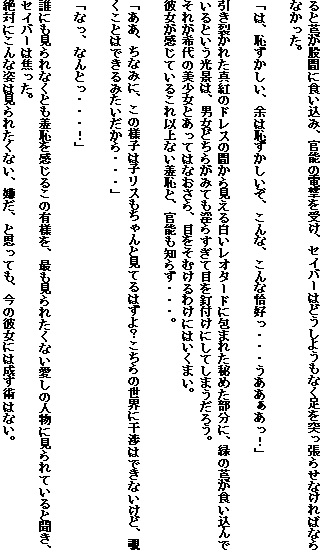 ると莒が股間に食い込み、官能の電撃を受け、セイバーはどうしようもなく足を突っ張らせなければなら
なかった。
「は、恥ずかしい、余は恥ずかしいぞ、こんな、こんな恰好っ・・・うああぁあっ！」
引き裂かれた真紅のドレスの間から見える白いレオタードに包まれた秘めた部分に、緑の莒が食い込んで
いるという光景は、男女どちらがみても淫らすぎて目を釘付けにしてしまうだろう。
それが希代の美少女とあってはなおさら、目をそむけるわけにはいくまい。
彼女が感じているこれ以上ない羞恥と、官能も知らず・・・。
「ああ、ちなみに、この様子は子リスもちゃんと見てるはずよ？こちらの世界に干渉はできないけど、覗
くことはできるみたいだから・・・」
「なっ、なんとっ・・・！」
誰にも見られなくとも羞恥を感じるこの有様を、最も見られたくない愛しの人物に見られていると聞き、
セイバーは焦った。
絶対にこんな姿は見られたくない、嫌だ、と思っても、今の彼女には成す術はない。